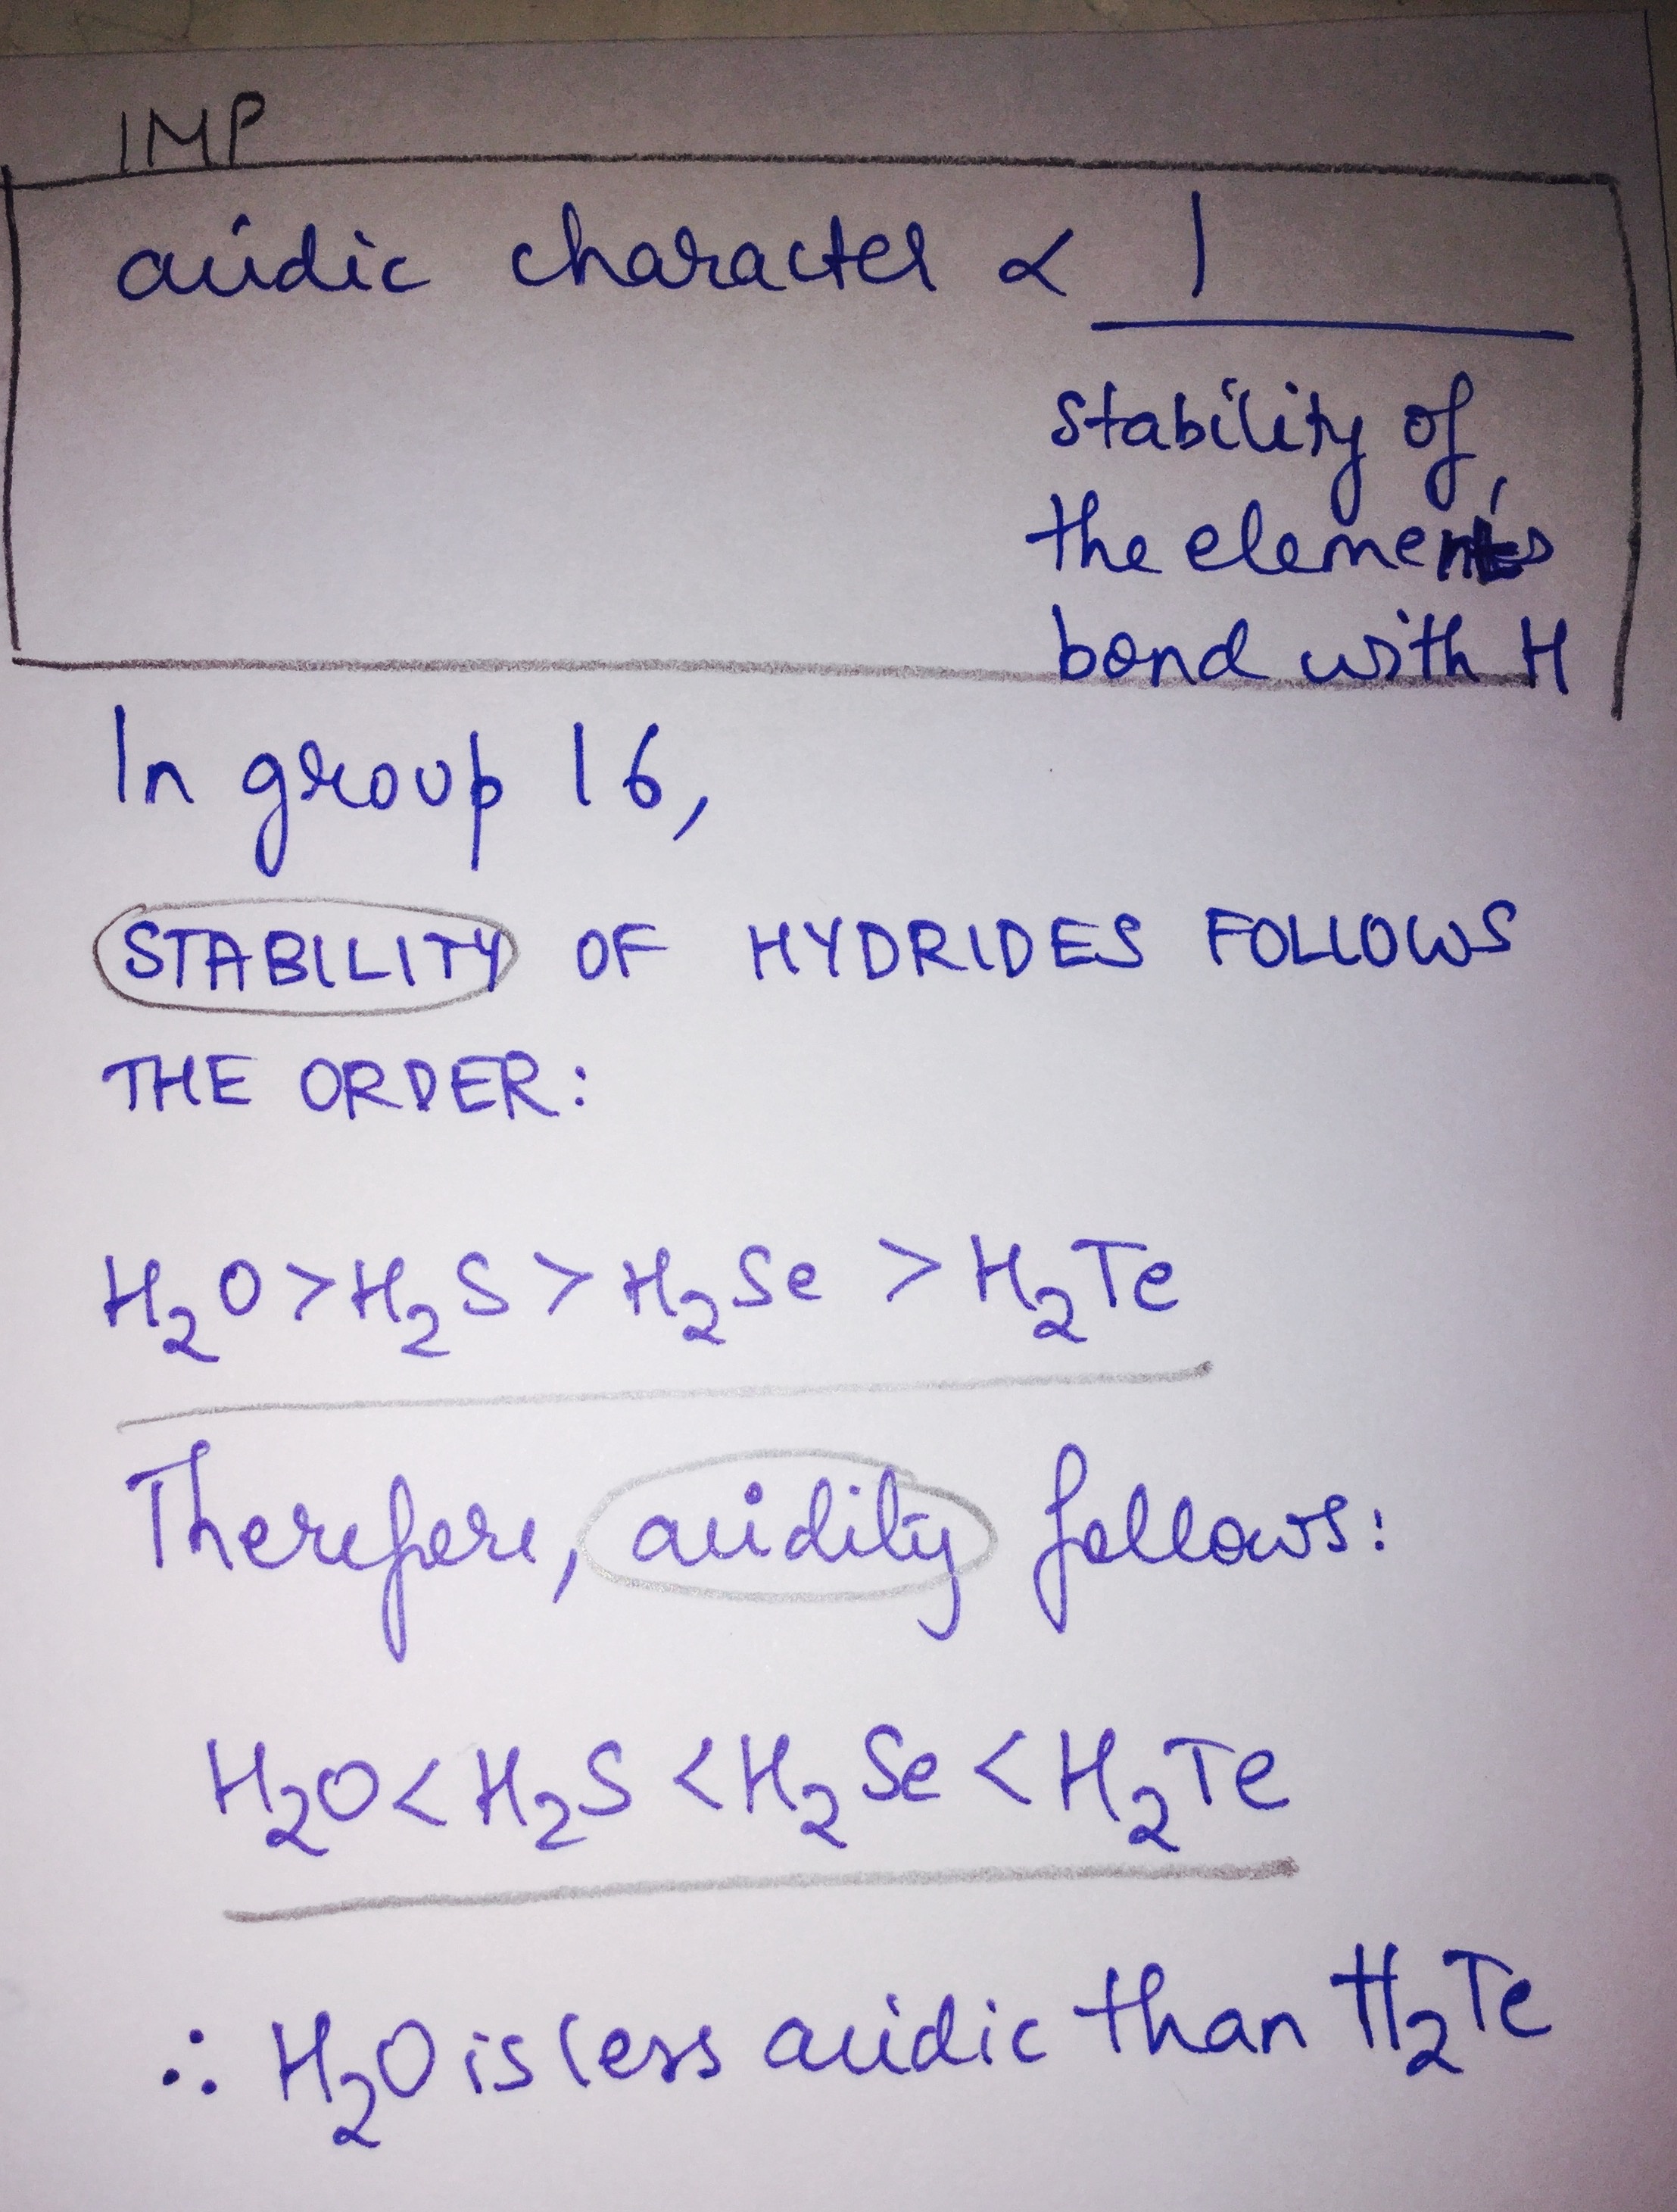 IMP
acidic character ∝ 1
stability of
the element's
bond with H
In group 16,
STABILITY OF HYDRIDES FOLLOWS
THE ORDER:
H₂O > H₂S > H₂Se > H₂Te
Therefore, acidity follows:
H₂O < H₂S < H₂Se < H₂Te
∴ H₂O is less acidic than H₂Te